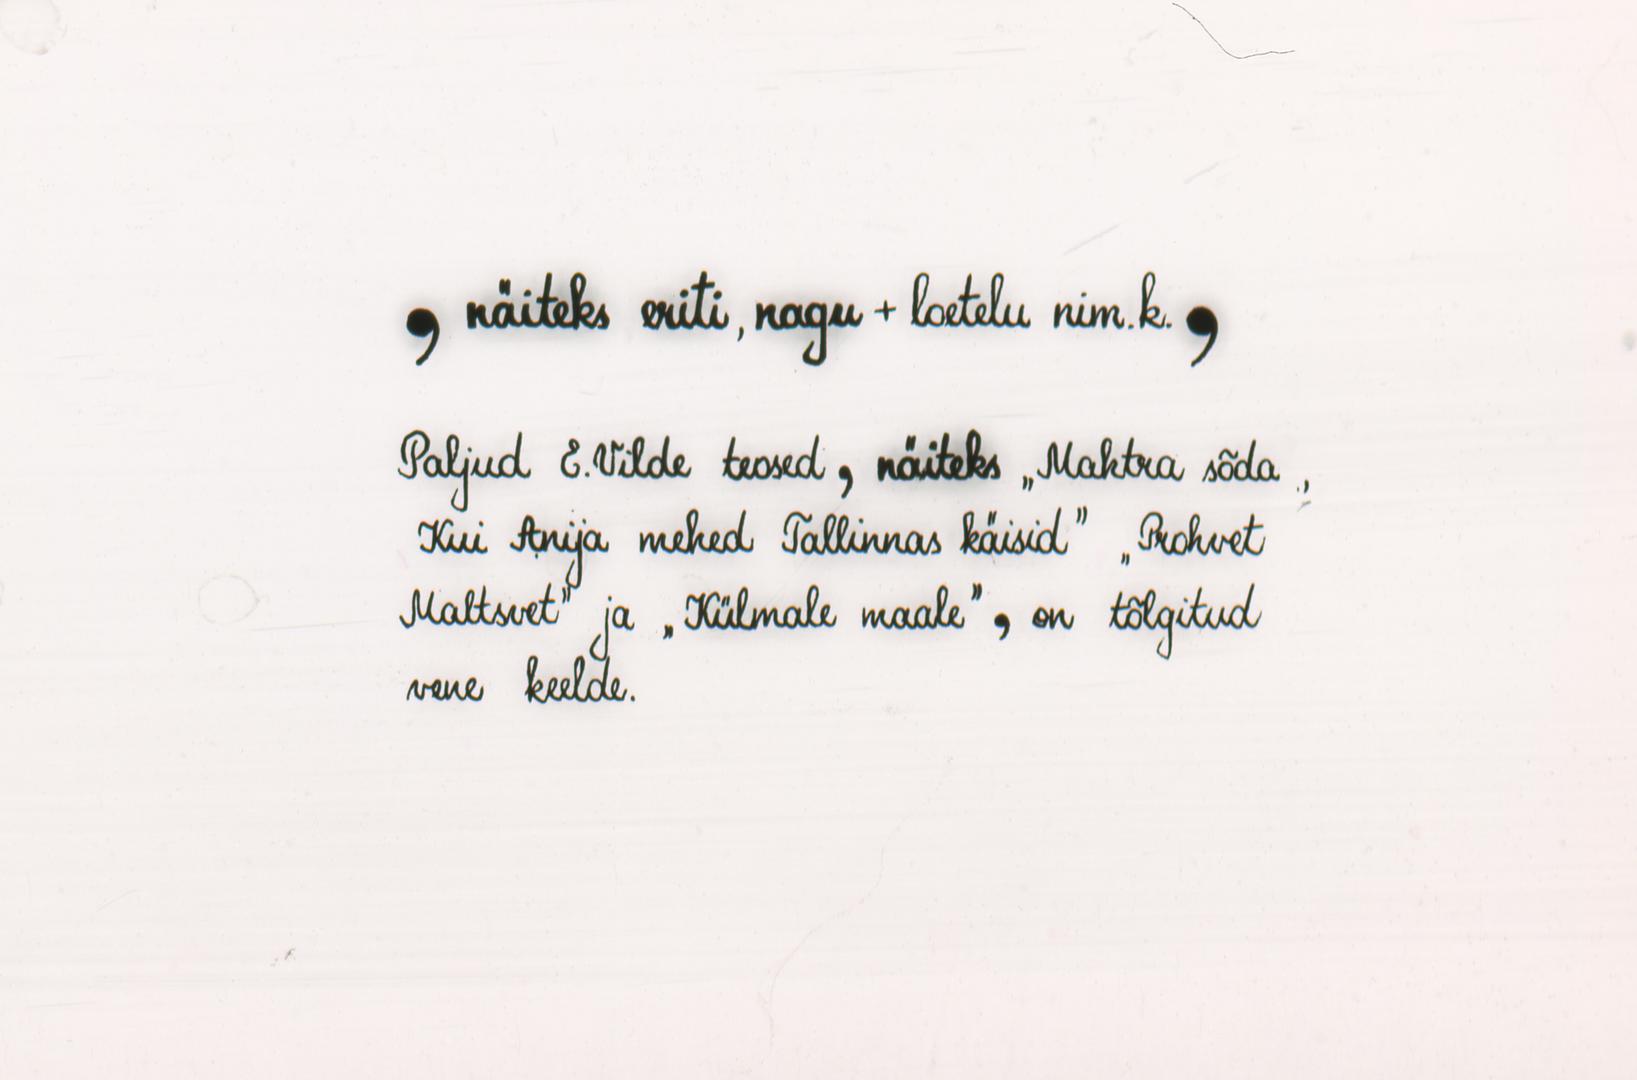 , näiteks eriti, nagu + loetelu nim.k. ,
Paljud E. Vilde teosed, näiteks „Mahtra sõda.,
Kui Anija mehed Tallinnas käisid” „Prohvet
Maltsvet” ja „Külmale maale”, on tõlgitud
vene keelde.